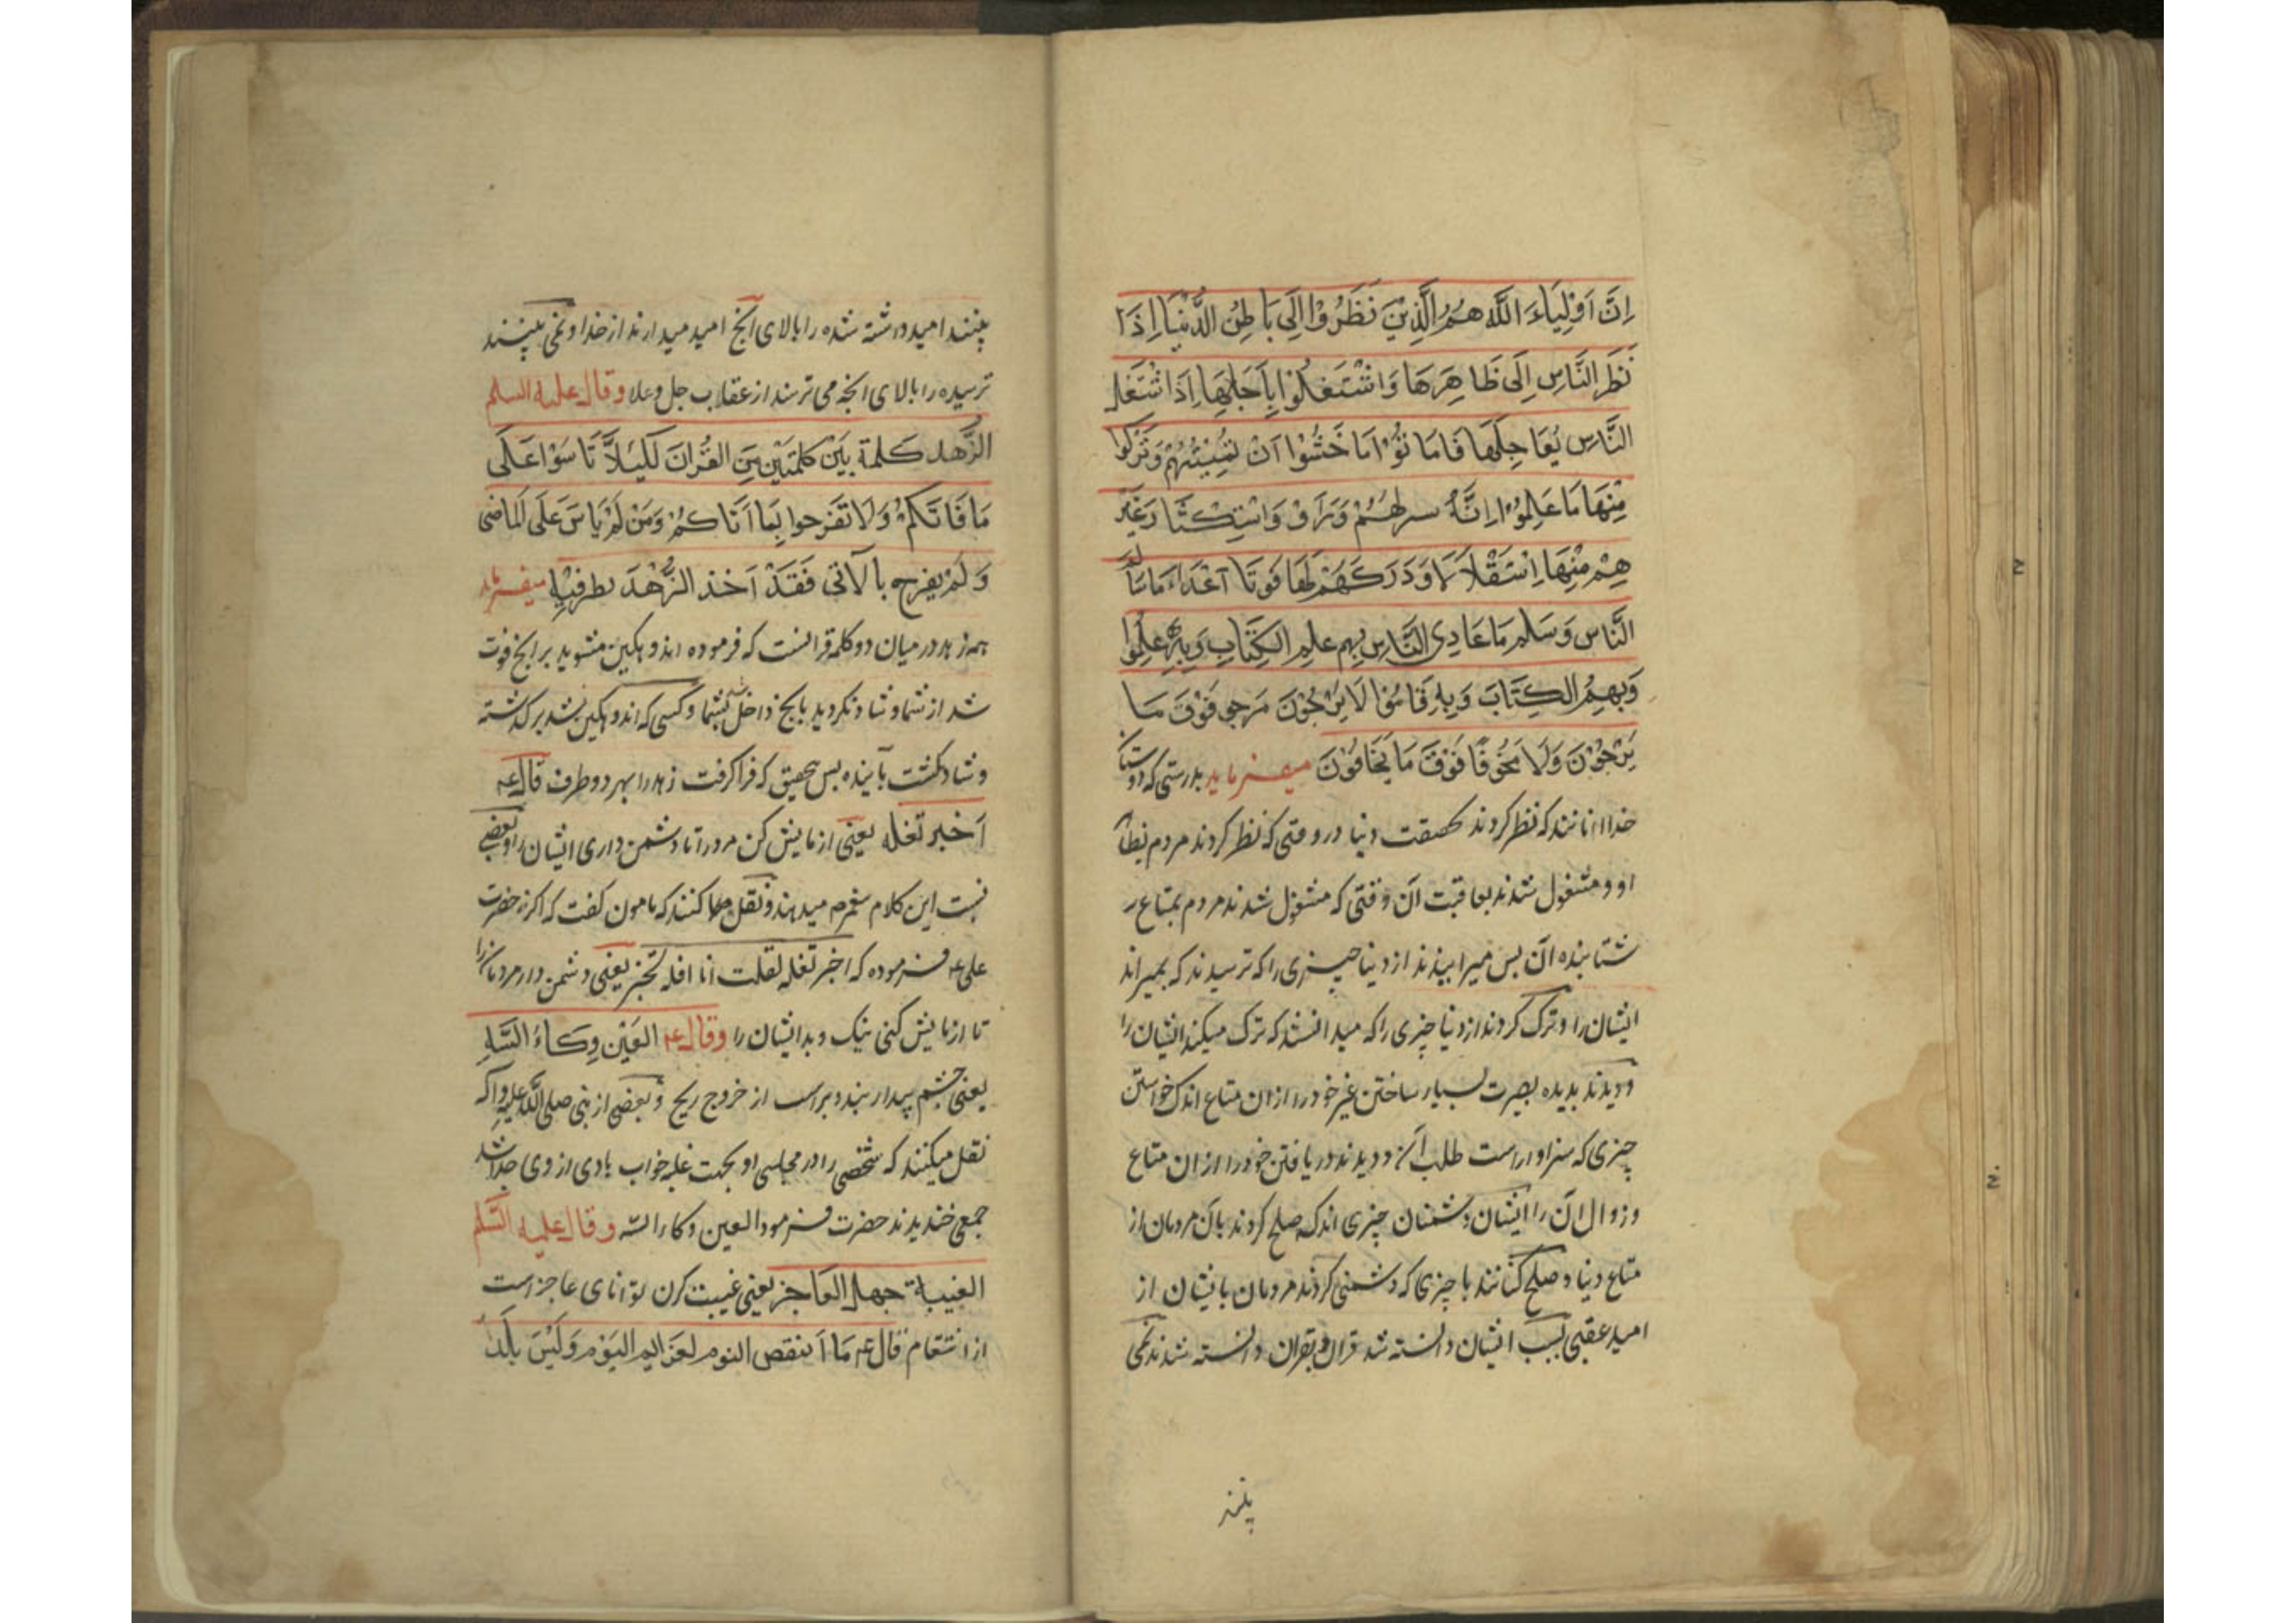 اِنَّ اَوْلِیَاءَ اللَّهِ هُمُ الَّذِیْنَ نَظَرُوْا اِلَی بَاطِنِ الدُّنْیَا اِذَا
نَظَرَ النَّاسِ اِلَی ظَاهِرِهَا وَاشْتَغَلُوْا بِاَجَلِهَا اِذَا اشْتَغَلَ
النَّاس بُعَاجِلِهَا فَامَا تُوْا مَا خَشُوْا اَنْ یُمِیْتُهُمْ وَتَرَکُوا
مِنْهَا مَا عَلِمُوْا اِنَّهُ سرلهُمْ وَرَاَوْ وَاسْتِکْثَا رَغَیْر
هِمْ مِنْهَا اِسْتَقْلَالاً وَدَرَکَهُمْ لَهَا فَوتَا اَعْدَاءُ مَا سَالَمَ
النَّاس وَسَلم مَا عَادِی النَّاس بِهِم عُلِم الکِتَابِ وَبِهِ عَلِمُوْا
وَبِهِمُ الکِتَابَ وَبِهِ قَامُوْا لَایَرْجُوْنَ مَرجو فَوْقَ مَا
یَرْجُوْنَ وَلَا مَخُوفًا فَوْقَ مَا یَخَافُوْنَ میفرماید بدرستی که دوستان
خدا انانند که نظر کردند بحقیقت دنیا در وقتی که نظر کردند مردم بظاهر
او و مشغول شدند بعاقبت آن وقتی که مشغول شدند مردم بمتاع
شتابنده آن پس میرانیدند از دنیا چیزی را که ترسیدند که بمیراند
ایشان را و ترک کردند از دنیا چیزی را که میدانستند که ترک میکند ایشان را
و دیدند بدیده بصیرت بسیار ساختن غیر خود را از ان متاع اندک خواستن
چیزی که سزاوار است طلب آن و دیدند دریافتن خود را از ان متاع
و زوال ان را ایشان دشمنان چیزی اند که صلح کردند بآن مردمان از
متاع دنیا و صلح کنانند با چیزی که دشمنی کردند مردمان بایشان از
امید عقبی بسبب ایشان دانسته شد قران و بقران دانسته شدند نمی
بینند
بینند امید داشته شده را بالای آنچ امید میدارند از خدا و نمی بینند
ترسیده را بالای انچه می ترسند از عقاب جل وعلا وقال علیه السلم
الزُّهد کَلمة بَیْن کَلمَتَیْن مِنَ القُرْانَ لکَیْلاَ تَاسَوْا عَلَی
مَا فَاتَکُمْ وَلَا تَفْرحوا بِمَا اَتَاکُمْ وَمَنْ لَمْ یَاسَ عَلَی الماضی
وَلَمْ یفرح بالآتی فَقَدْ اَخَذ الزُّهْدَ بطرفَیْهِ میفرماید
همه زهد در میان دو کلمه قرانست که فرموده اندوهکین مشوید بر انچ فوت
شد از شما و شاد نکردید بانچ داخل شد بشما و کسی که اندوهکین نشد بر کذشته
و شاد نکشت بآینده پس بتحقیق که فرا کرفت زهد را بهر دو طرف قال ع
اَخبر تقله یعنی ازمایش کن مردرا تا دشمن داری ایشان را و بعضی
نسبت این کلام بپیغمبر میدهند و نقل میکنند که مامون کفت که اکر نه حضرت
علی ع فرموده که اخبر تقله لقلت انا اقله تخبر یعنی دشمن دار مردمان را
تا ازمایش کنی نیک و بد ایشان را وقال ع العَیْن وِکَاءُ السَّهِ
یعنی چشم بیدار بند دبر است از خروج ریح و بعضی از نبی صلی الله علیه واله
نقل میکنند که شخصی را در مجلسی او بجهت غلبه خواب بادی از وی جدا شد
جمعی خندیدند حضرت فرمود العین وکاء السه وقال علیه السَّلم
الغیبة جهد العَاجز یعنی غیبت کرن توانای عاجز است
از انتقام قال ع مَا اَنقص النوم لعَزایم الیَوْم وَلَیْسَ بلَد